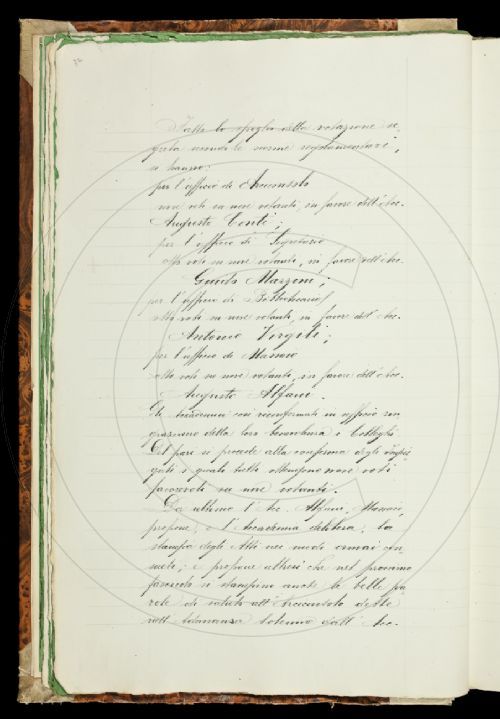 Fatto lo spoglio della votazione se-
greta secondo le norme regolamentari,
si hanno:
per l'ufficio di Arciconsolo
nove voti su nove votanti, in favore dell'Acc.
Augusto Conti;
per l'ufficio di Segretario
otto voti su nove votanti, in favore dell'Acc.
Guido Mazzoni;
per l'ufficio di Bibliotecario
otto voti su nove votanti, in favore dell'Acc.
Antonio Virgili;
per l'ufficio di Massaio
otto voti su nove votanti, in favore dell'Acc.
Augusto Alfani.
Gli Accademici così riconfermati in ufficio rin-
graziano della loro benevolenza i Colleghi.
Del pari si procede alla conferma degli
quali tutti ottengono nove voti
favorevoli su nove votanti.
Da ultimo l'Acc. Alfani, Massaio,
propone, e l'Accademia delibera, la
stampa degli Atti nei modi ormai con-
sueti; e propone altresì che nel prossimo
fascicolo si stampino anche le belle pa-
role di saluto all'Arciconsolo dette
nell'adunanza solenne dall'Acc.